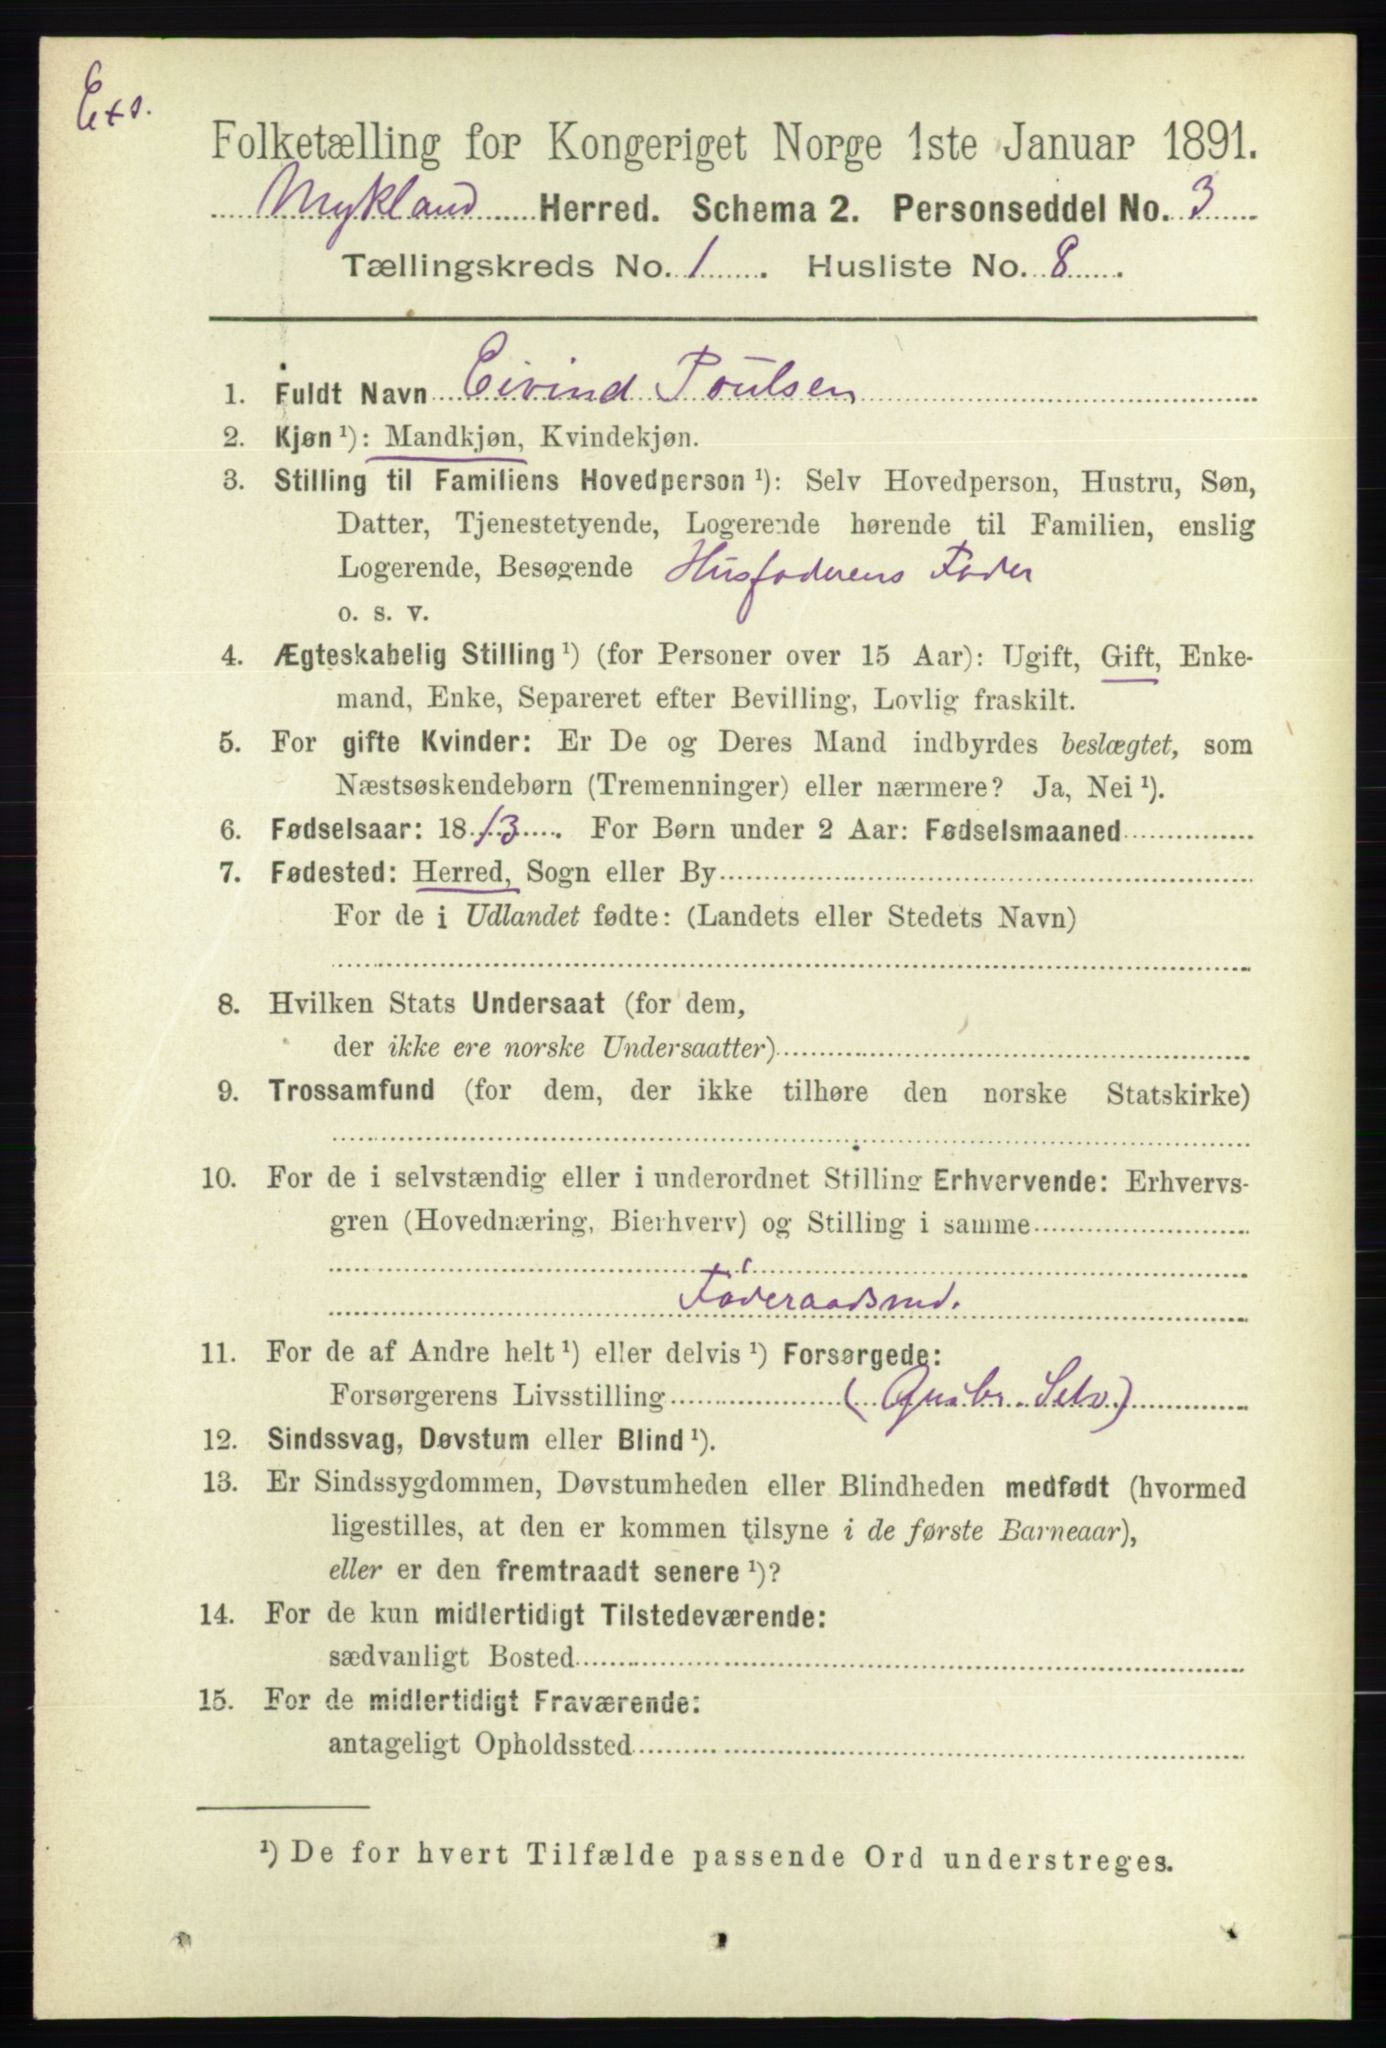 Folketælling for Kongeriget Norge 1ste Januar 1891.
Mykland Herred. Schema 2. Personseddel No. 3
Tællingskreds No. 1. Husliste No. 8.
1. Fuldt Navn Eivind Poulsen
2. Kjøn ¹): Mandkjøn, Kvindekjøn.
3. Stilling til Familiens Hovedperson ¹): Selv Hovedperson, Hustru, Søn,
Datter, Tjenestetyende, Logerende hørende til Familien, enslig
Logerende, Besøgende Husfaderens Fader
o. s. v.
4. Ægteskabelig Stilling ¹) (for Personer over 15 Aar): Ugift, Gift, Enke-
mand, Enke, Separeret efter Bevilling, Lovlig fraskilt.
5. For gifte Kvinder: Er De og Deres Mand indbyrdes beslægtet, som
Næstsøskendebørn (Tremenninger) eller nærmere? Ja, Nei ¹).
6. Fødselsaar: 1813. For Børn under 2 Aar: Fødselsmaaned
7. Fødested: Herred, Sogn eller By
For de i Udlandet fødte: (Landets eller Stedets Navn)
8. Hvilken Stats Undersaat (for dem,
der ikke ere norske Undersaatter)
9. Trossamfund (for dem, der ikke tilhøre den norske Statskirke)
10. For de i selvstændig eller i underordnet Stilling Erhvervende: Erhvervs-
gren (Hovednæring, Bierhverv) og Stilling i samme
Føderaadsmd.
11. For de af Andre helt ¹) eller delvis ¹) Forsørgede:
Forsørgerens Livsstilling (Gaardbr. Selv)
12. Sindssvag, Døvstum eller Blind ¹).
13. Er Sindssygdommen, Døvstumheden eller Blindheden medfødt (hvormed
ligestilles, at den er kommen tilsyne i de første Barneaar),
eller er den fremtraadt senere ¹)?
14. For de kun midlertidigt Tilstedeværende:
sædvanligt Bosted
15. For de midlertidigt Fraværende:
antageligt Opholdssted
¹) De for hvert Tilfælde passende Ord understreges.